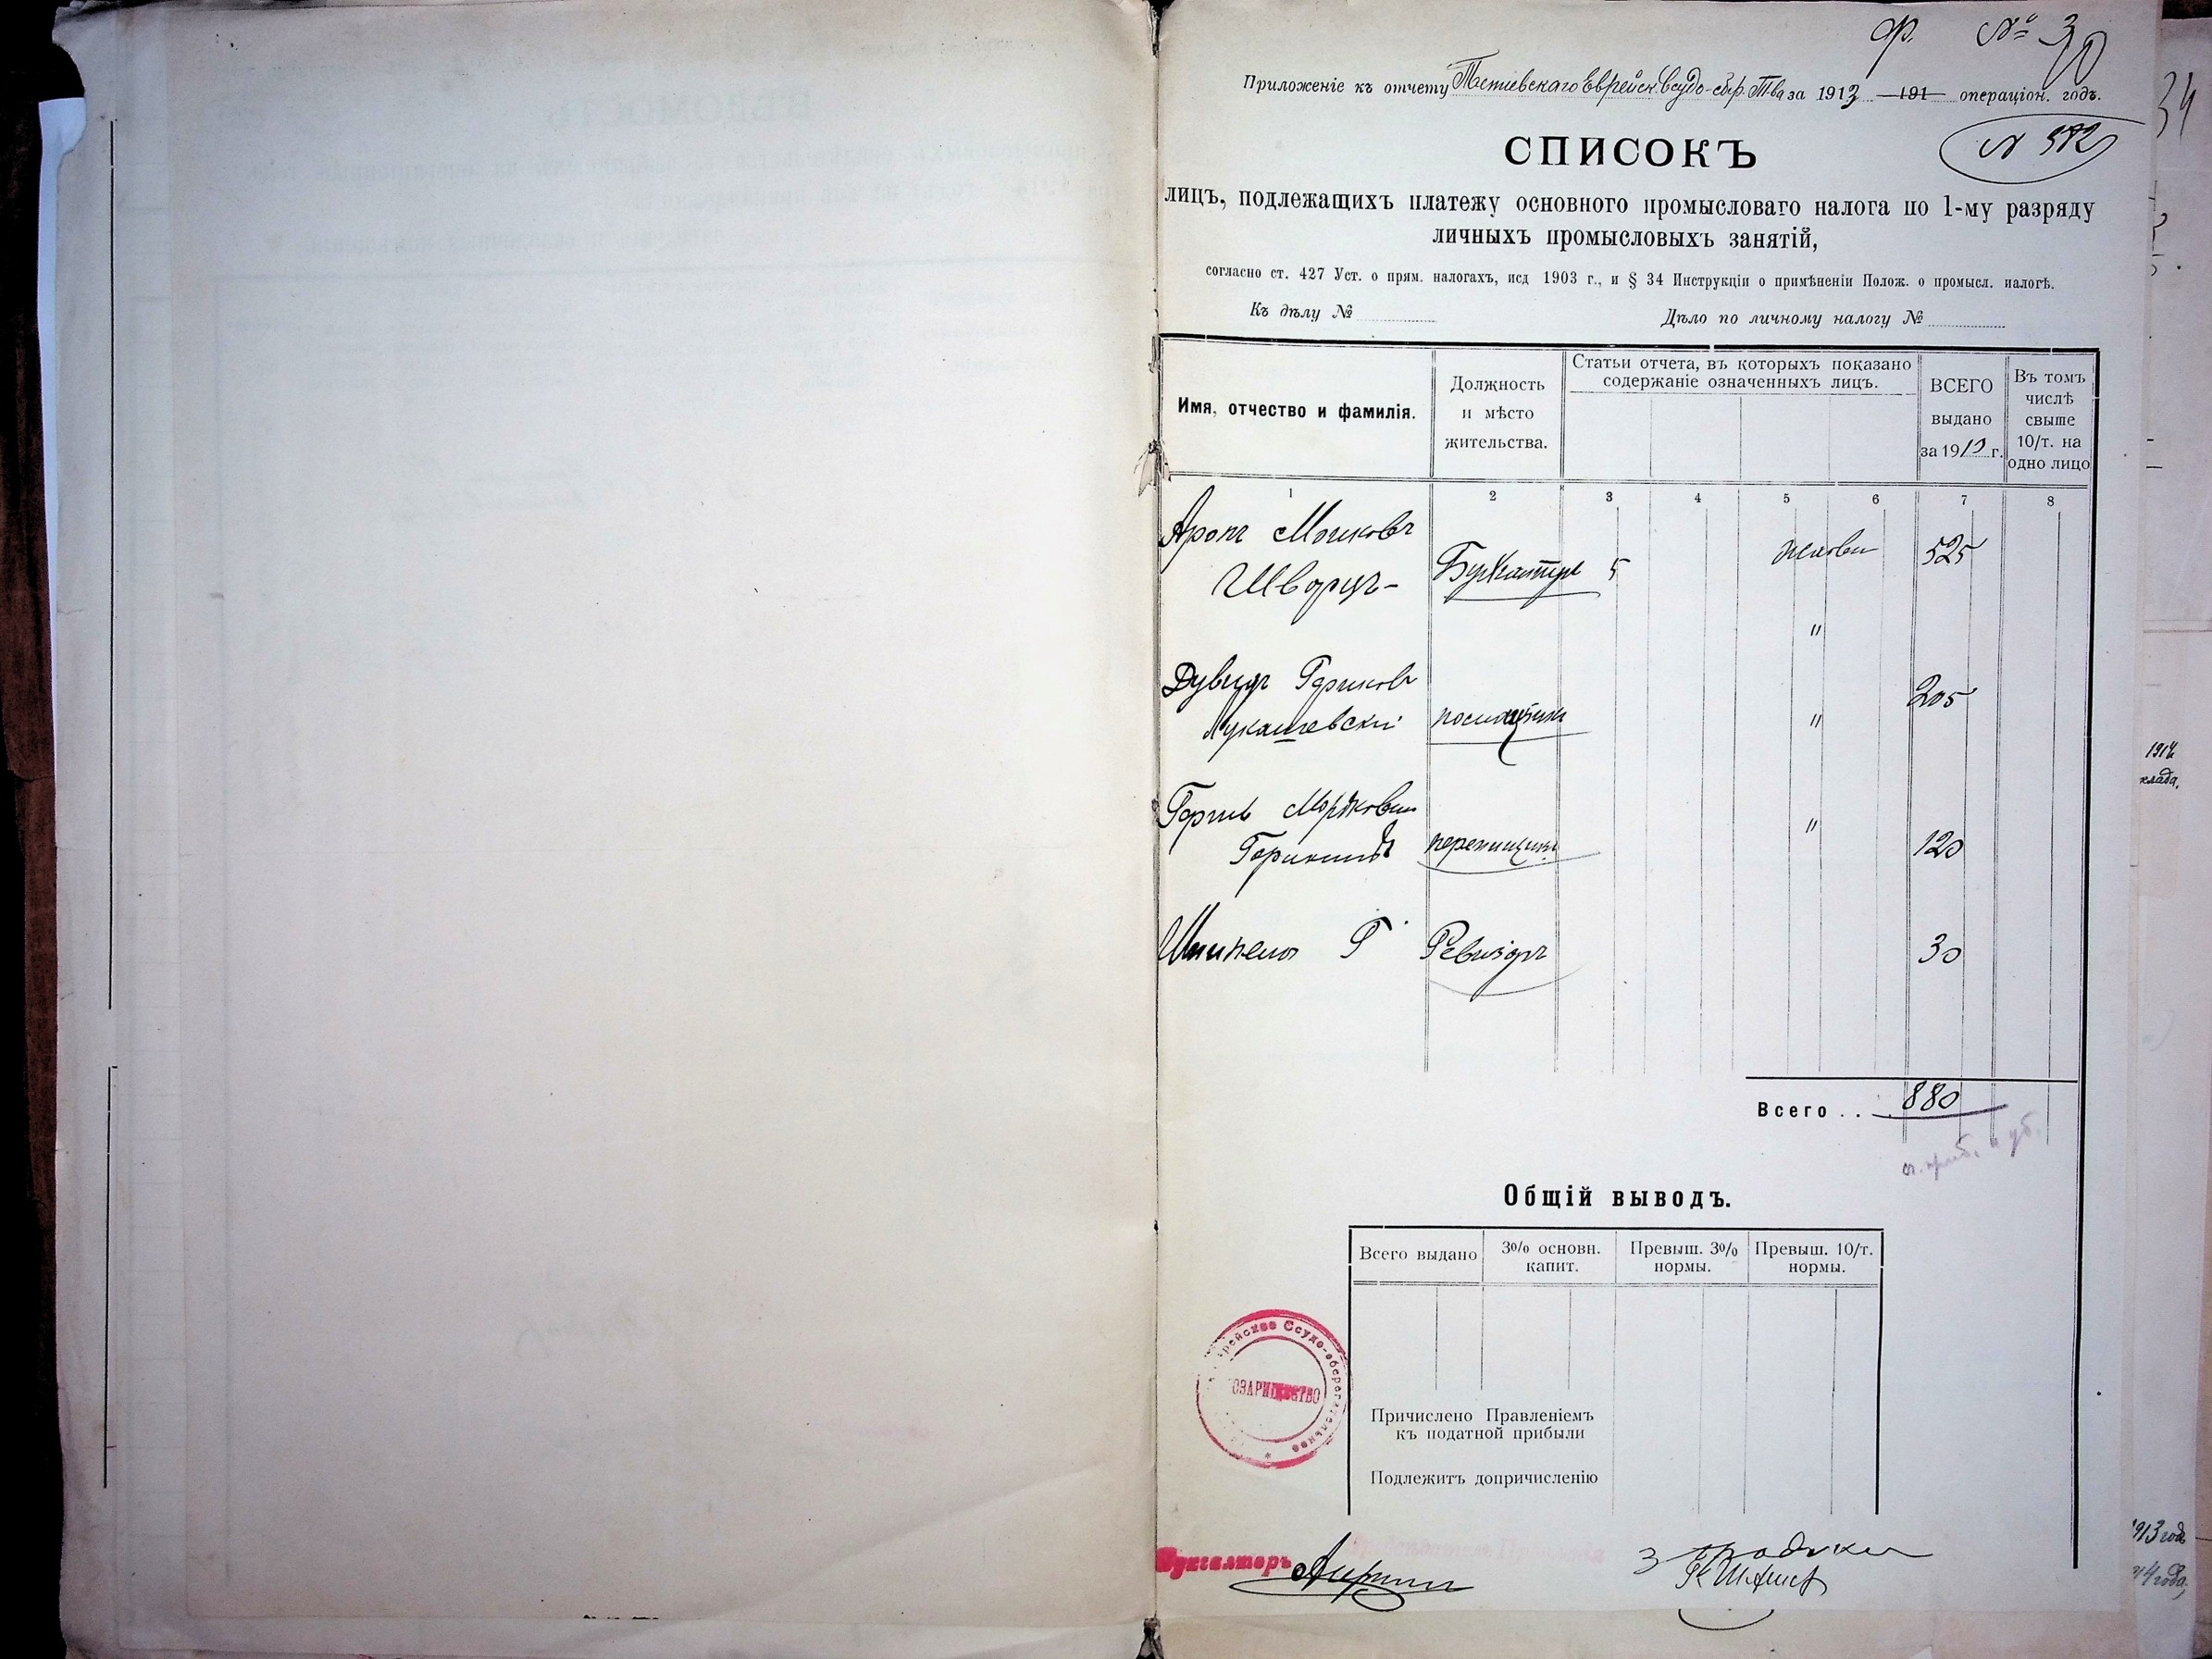 Ф. № 30
Приложеніе къ отчету Тетіевскаго Еврейск. Ссудо-сбер. Т-ва за 1913 —191— операціон. годъ.
СПИСОКЪ
N 582
лицъ, подлежащихъ платежу основного промысловаго налога по 1-му разряду
личныхъ промысловыхъ занятій,
согласно ст. 427 Уст. о прям. налогахъ, исд 1903 г., и § 34 Инструкціи о примѣненіи Полож. о промысл. налогѣ.
Къ дѣлу № Дѣло по личному налогу №
Имя, отчество и фамилія.
Должность
и мѣсто
жительства.
Статьи отчета, въ которыхъ показано
содержаніе означенныхъ лицъ.
ВСЕГО
выдано
за 1913 г.
Въ томъ
числѣ
свыше
10/т. на
одно лицо
1 2 3 4 5 6 7 8
Аронъ Мошковъ
Шварцъ- Бухгалтеръ 5 525
"
Дувидъ Гершковъ
Лукашевскій помощникъ " 205
Гершъ "
переписчикъ 120
Г Ревизоръ 30
Всего . . . 880
Общій выводъ.
Всего выдано
3% основн.
капит.
Превыш. 3%
нормы.
Превыш. 10/т.
нормы.
Причислено Правленіемъ
къ податной прибыли
Подлежитъ допричисленію
рейское Ссудо-сберегательное
ОВАРИЩЕСТВО
Бухгалтеръ
34
1914
клада,
1913 года
914 года,